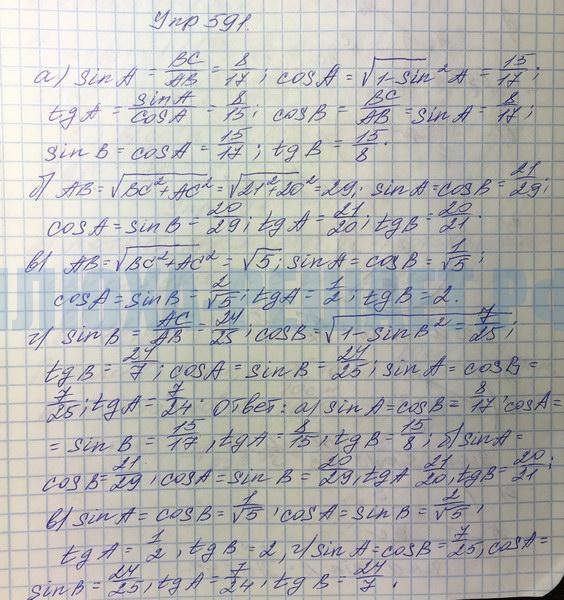 Упр 591.
а) sin A = BC/AB = 8/17; cos A = √(1-sin²A) = 15/17;
tg A = sin A/cos A = 8/15; cos B = BC/AB = sin A = 8/17;
sin B = cos A = 15/17; tg B = 15/8.
б) AB = √(BC²+AC²) = √(21²+20²) = 29; sin A = cos B = 21/29;
cos A = sin B = 20/29; tg A = 21/20; tg B = 20/21.
в) AB = √(BC²+AC²) = √5; sin A = cos B = 1/√5;
cos A = sin B = 2/√5; tg A = 1/2; tg B = 2.
г) sin B = AC/AB = 24/25; cos B = √(1-sin B²) = 7/25;
tg B = 24/7; cos A = sin B = 24/25; sin A = cos B =
7/25; tg A = 7/24. Ответ: а) sin A = cos B = 8/17, cos A =
= sin B = 15/17, tg A = 8/15, tg B = 15/8; б) sin A =
cos B = 21/29, cos A = sin B = 20/29, tg A 21/20, tg B = 20/21;
в) sin A = cos B = 1/√5; cos A = sin B = 2/√5;
tg A = 1/2, tg B = 2, г) sin A = cos B = 7/25, cos A =
sin B = 24/25, tg A = 7/24, tg B = 24/7.